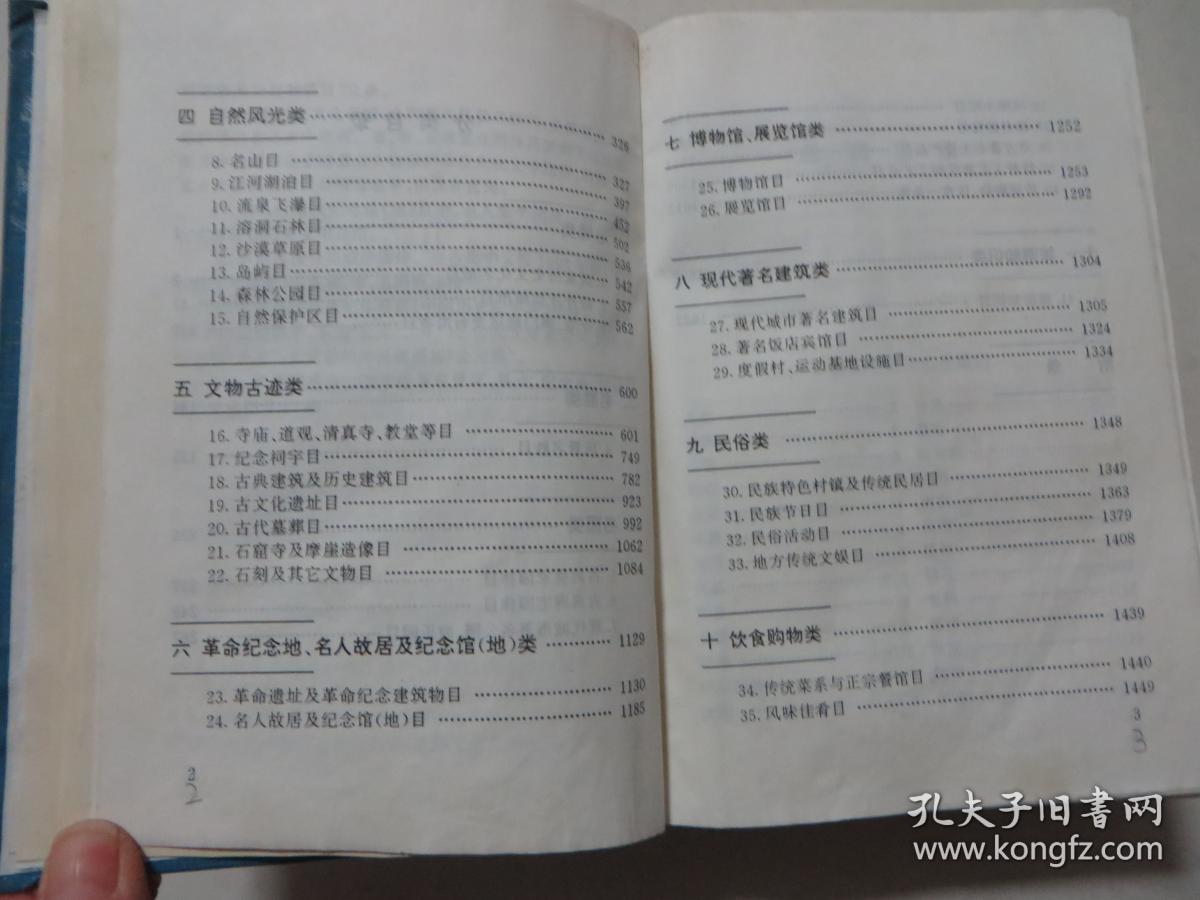 四 自然风光类 326
8. 名山目 327
9. 江河湖泊目 397
10. 流泉飞瀑目 452
11. 溶洞石林目 502
12. 沙漠草原目 536
13. 岛屿目 542
14. 森林公园目 557
15. 自然保护区目 562
五 文物古迹类 600
16. 寺庙、道观、清真寺、教堂等目 601
17. 纪念祠宇目 749
18. 古典建筑及历史建筑目 782
19. 古文化遗址目 923
20. 古代墓葬目 992
21. 石窟寺及摩崖造像目 1062
22. 石刻及其它文物目 1084
六 革命纪念地、名人故居及纪念馆(地)类 1129
23. 革命遗址及革命纪念建筑物目 1130
24. 名人故居及纪念馆(地)目 1185
2
2
七 博物馆、展览馆类 1252
25. 博物馆目 1253
26. 展览馆目 1292
八 现代著名建筑类 1304
27. 现代城市著名建筑目 1305
28. 著名饭店宾馆目 1324
29. 度假村、运动基地设施目 1334
九 民俗类 1348
30. 民族特色村镇及传统民居目 1349
31. 民族节日目 1363
32. 民俗活动目 1379
33. 地方传统文娱目 1408
十 饮食购物类 1439
34. 传统菜系与正宗餐馆目 1440
35. 风味佳肴目 1449
3
3
孔夫子旧书网
www.kongfz.com